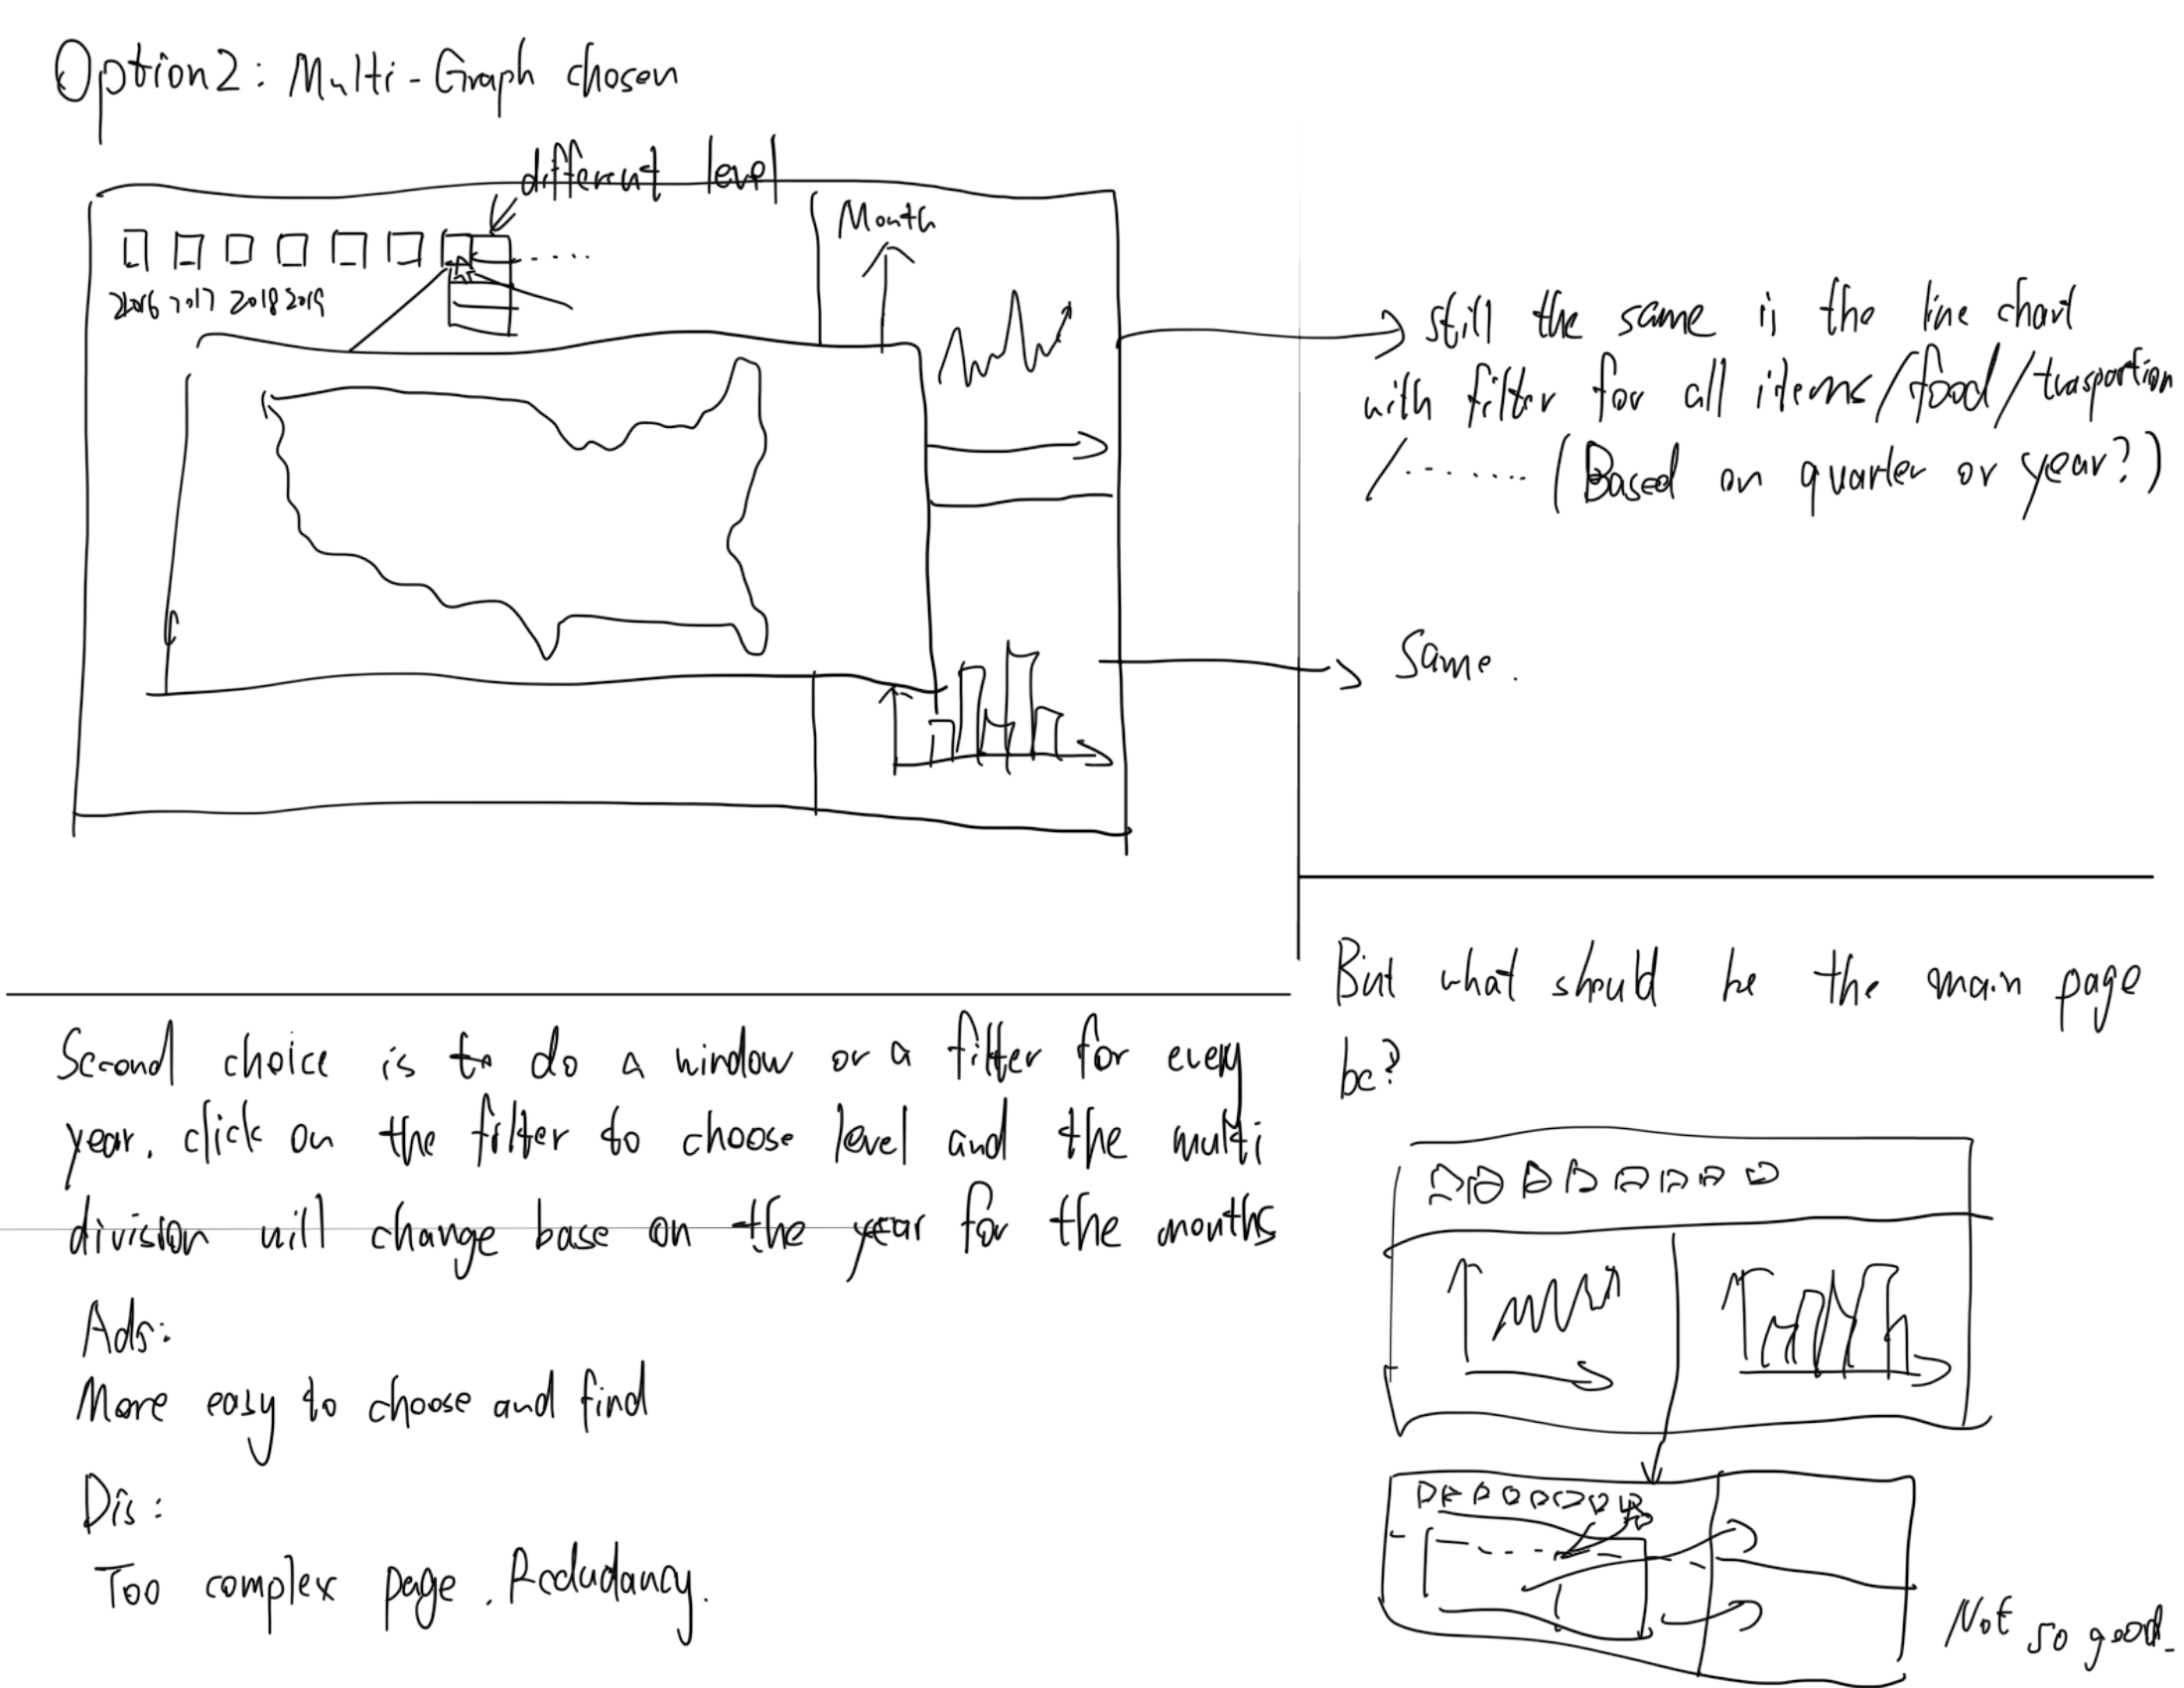 Option2: Multi-Graph chosen
different level
Month
2016 2017 2018 2019
still the same is the line chart
with filter for all items/food/trasportion
/........ (Based on quarter or year?)
Same.
But what should be the main page
be?
Second choice is to do a window or a filter for every
year. click on the filter to choose level and the multi
division will change base on the year for the months
Ads:
More easy to choose and find
Dis:
Too complex page. Redudancy.
Not so good.